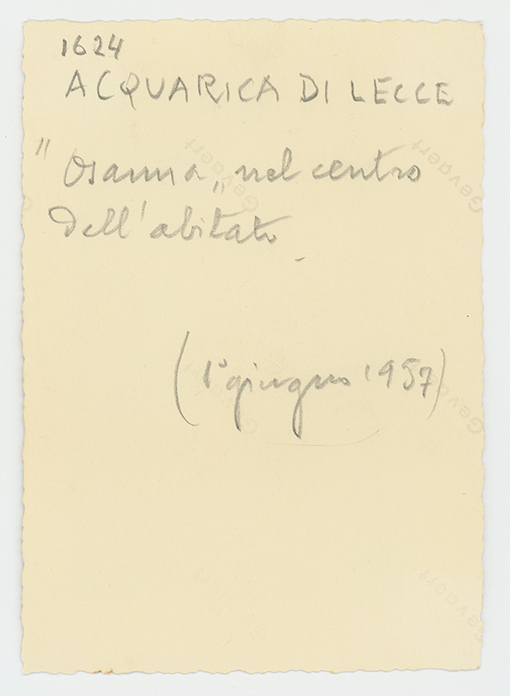 1624
ACQUARICA DI LECCE
"Osanna„ nel centro
dell'abitato
(1° giugno 1957)
Gevaert
Gevaert
Gevaert